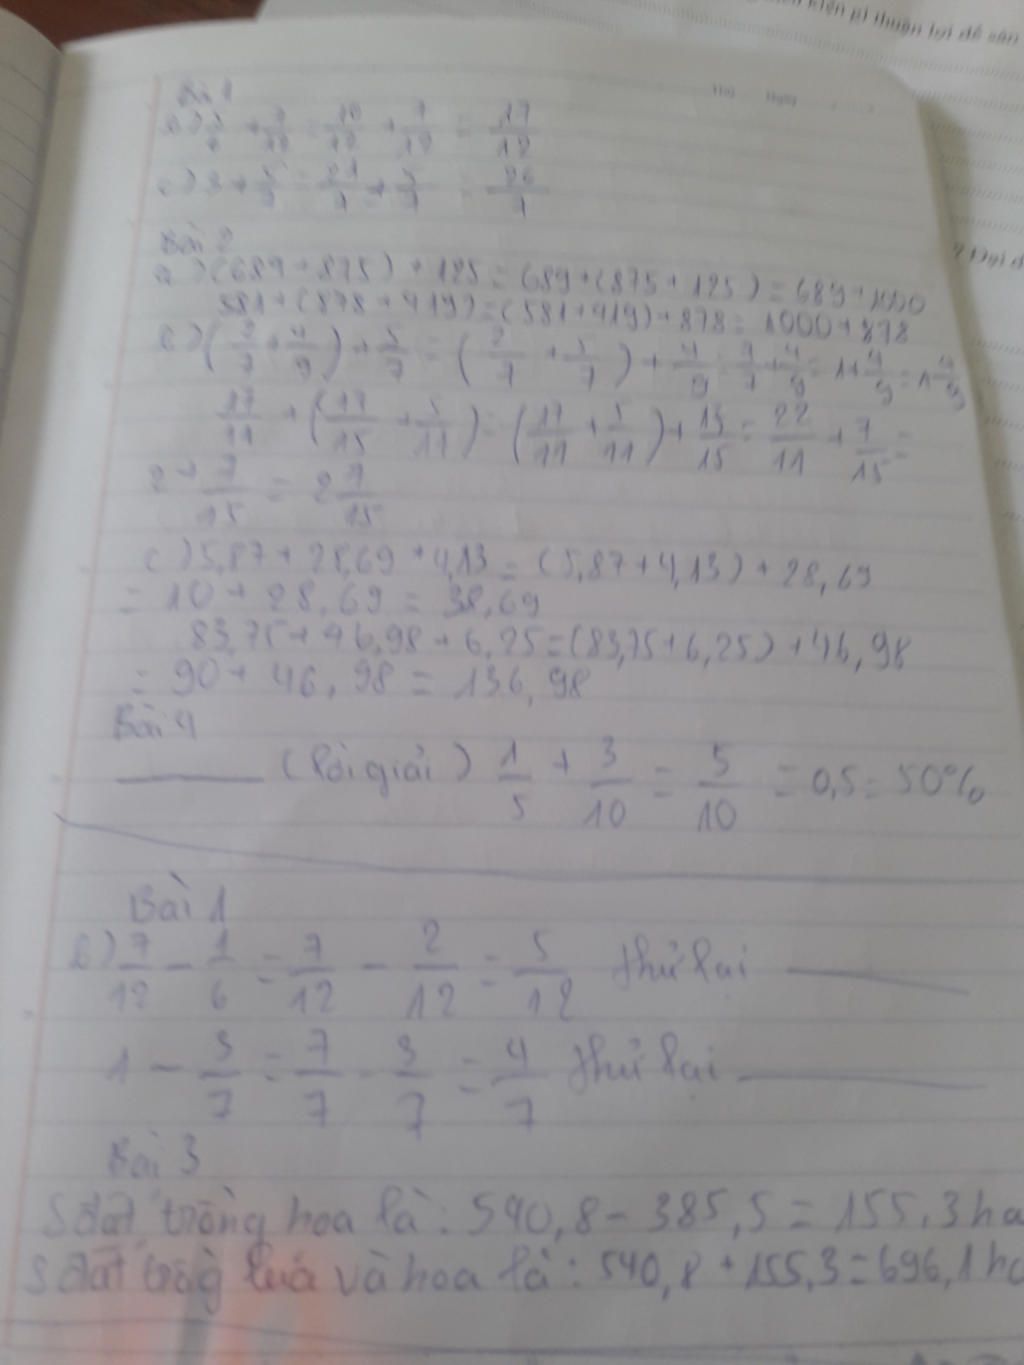 kiện gì thuận lợi để sản
Bài 1
b) 5/6 + 7/12 = 10/12 + 7/12 = 17/12
c) 3 + 5/7 = 21/7 + 5/7 = 26/7
Bài 2
a) (689 + 875) + 125 = 689 + (875 + 125) = 689 + 1000
581 + (878 + 419) = (581 + 419) + 878 = 1000 + 878
b) (2/7 + 4/9) + 5/7 = (2/7 + 5/7) + 4/9 = 7/7 + 4/9 = 1 + 4/9 = 1 4/9
17/11 + (17/15 + 5/11) = (17/11 + 5/11) + 15/15 = 22/11 + 7/15 =
2 + 7/15 = 2 7/15
c) 5,87 + 28,69 + 4,13 = (5,87 + 4,13) + 28,69
= 10 + 28,69 = 38,69
83,75 + 46,98 + 6,25 = (83,75 + 6,25) + 46,98
= 90 + 46,98 = 136,98
Bài 4
(lời giải) 1/5 + 3/10 = 5/10 = 0,5 = 50%
Bài 1
b) 7/12 - 1/6 = 7/12 - 2/12 = 5/12 thử lại
1 - 3/7 = 7/7 - 3/7 = 4/7 thử lại
Bài 3
S đất trồng hoa là: 540,8 - 385,5 = 155,3 ha
S đất trồng lúa và hoa là: 540,8 + 155,3 = 696,1 ha